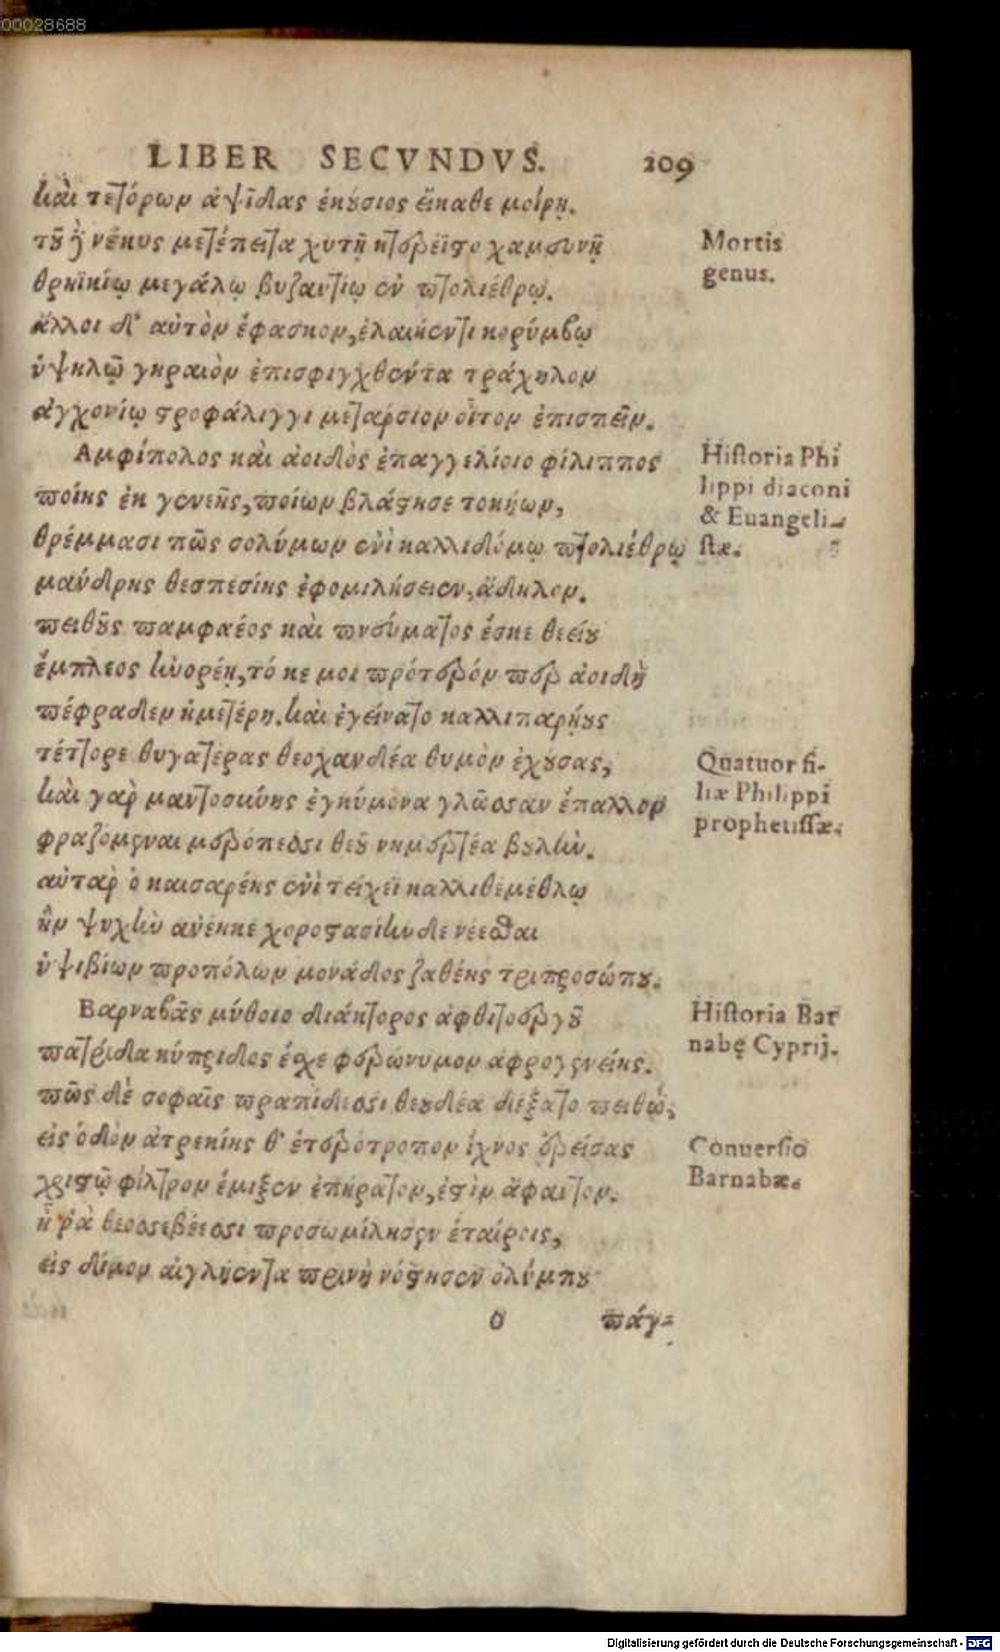 00028688
LIBER SECVNDVS. 209
καὶ τεττόρων ἀψῖδας ἑκούσιος εἵκαθε μοίρῃ.
τοῦ δὲ νέκυς μετέπειτα χυτῇ κατερείπτο χαμευνῇ
θρηϊκίῳ μεγάλῳ βυζαντίῳ ἐν πτολιέθρῳ.
ἄλλοι δ' αὐτὸν ἔφασκον, ἐλαιήεντι κορύμβῳ
ὑψηλῷ γηραιὸν ἐπισφιγχθέντα τράχηλον
ἀγχονίῳ στροφάλιγγι μετάρσιον οἶτον ἐπισπεῖν.
Ἀμφίπολος καὶ ἀοιδὸς ἐπαγγελίοιο φίλιππος
ποίης ἐκ γενεῆς, ποίων βλάστησε τοκήων,
θρέμμασι πῶς σολύμων ἐνὶ καλλιδόμῳ πτολιέθρῳ
μάνδρης θεσπεσίης ἐφομιλήσειεν, ἄδηλον.
πειθοῦς παμφαέος καὶ πνεύματος ἔσκε θεείου
ἔμπλεος ἠνορέη, τό κε μοι πρότερόν περ ἀοιδὴ
πέφραδεν ἡμετέρη. καὶ ἐγείνατο καλλιπαρῄους
τέττορε θυγατέρας θεοχανδέα θυμὸν ἐχούσας,
καὶ γὰρ μαντοσύνης ἐγκύμονα γλῶσσαν ἔπαλλον
φραζόμεναι μερόπεσσι θεοῦ νημερτέα βουλήν.
αὐτὰρ ὁ καισαρέης ἐνὶ τείχεϊ καλλιθεμέθλῳ
ἣν ψυχὴν ἀνέηκε χοροστασίηνδε νέεσθαι
ὑψιβίων προπόλων μονάδος ζαθέης τριπροσώπου.
Βαρναβᾶς μύθοιο διάκτορος ἀφθιτοεργοῦ
πατρίδα κύπριδος ἔσχε φερώνυμον ἀφρογενείης.
πῶς δὲ σοφαῖς πραπίδεσσι θεουδέα δέξατο πειθώ;
εἰς ὁδὸν ἀτρεκίης θ' ἑτερότροπον ἴχνος ἐρείσας
χριστῷ φίλτρον ἔμιξεν ἐπήρατον, ἐστὶν ἄφαντον.
ἦ ῥὰ θεοσεβέεσσι προσωμίλησεν ἑταίροις,
εἰς δόμον αἰγλήεντα πρινὴ νόστησεν ὀλύμπου
O πάγ-
Mortis
genus.
Historia Phi
lippi diaconi
& Euangeli-
stæ.
Quatuor fi-
liæ Philippi
prophetissæ.
Historia Bar
nabę Cyprij.
Conuersio
Barnabæ.
Digitalisierung gefördert durch die Deutsche Forschungsgemeinschaft - DFG